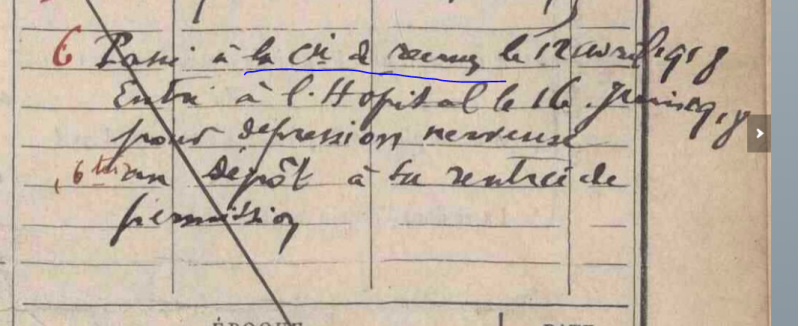 6 Passé à la Cie de renng le 12 avril 1918
Entré à l'Hôpital le 16 Juin 1918
pour dépression nerveuse
6 bis au dépôt à sa rentrée de
permission
ÉPOQUE DATE